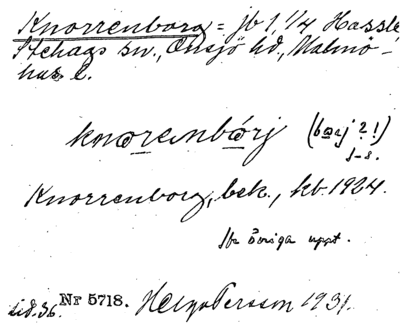 Knorrenborg = jb 1, 1/4 Hassle
Stehags sn., Onsjö hd., Malmö-
hus l.
knorenbórj (borj ? !)
Knorrenborg, bek., kb. 1924.
övriga uppt.
sid. 36. Nr 5718. Helge Persson 1931.